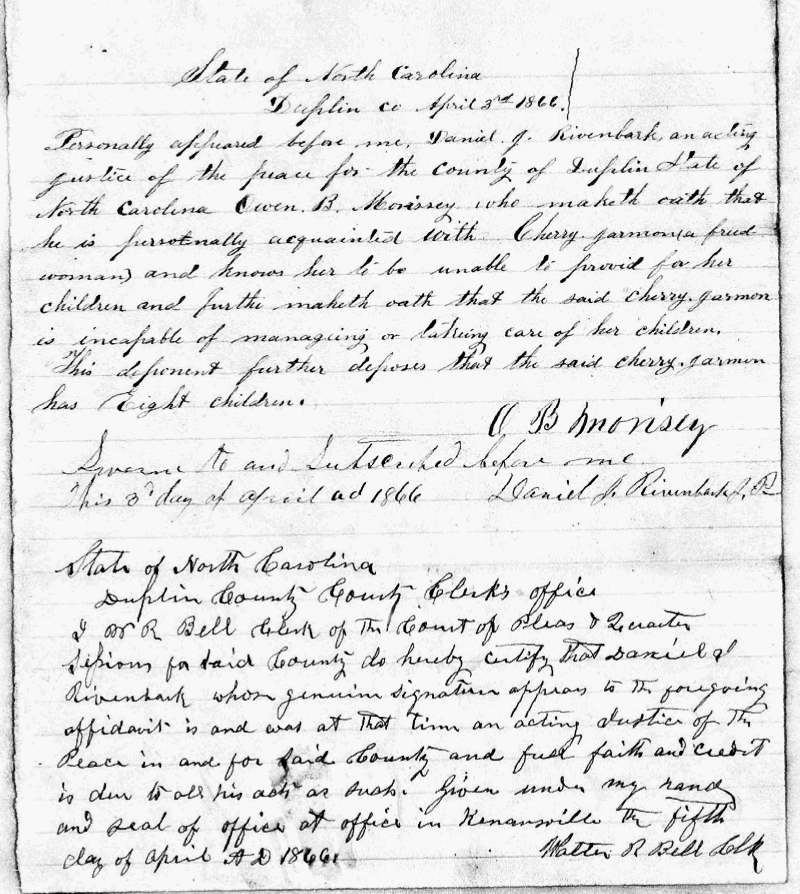 State of North Carolina
Duplin co April 3rd 1866.
Personally appeared before me, Daniel. J. Rivenbark, an acting
justice of the peace for the county of Duplin State of
North Carolina Owen. B. Morissey who maketh oath that
he is personally acquainted with Cherry. garmon (a freed
woman) and knows her to be unable to provid for her
children and furthe maketh oath that the said cherry. garmon
is incapable of managing or takeing care of her children.
This deponent further deposes that the said cherry. garmon
has Eight children.
O B Morisey
Sworn to and Subscribed before me
This 3d day of April ad 1866 Daniel J. Rivenbark J. P.
State of North Carolina
Duplin County County Clerks office
I W R Bell Clerk of the Court of Pleas & Quarter
Sessions for said County do hereby certify that Daniel J
Rivenbark whose genuine signature appears to the foregoing
affidavit is and was at that time an acting Justice of the
Peace in and for said County and full faith and credit
is due to all his acts as such. Given under my hand
and seal of office at office in Kenansville the fifth
day of April A D 1866. Walter R Bell Clk